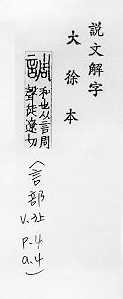 說文解字
大徐本
調
和也从言周
聲徒遼切
(言部
V.3上
P.4
a.4)